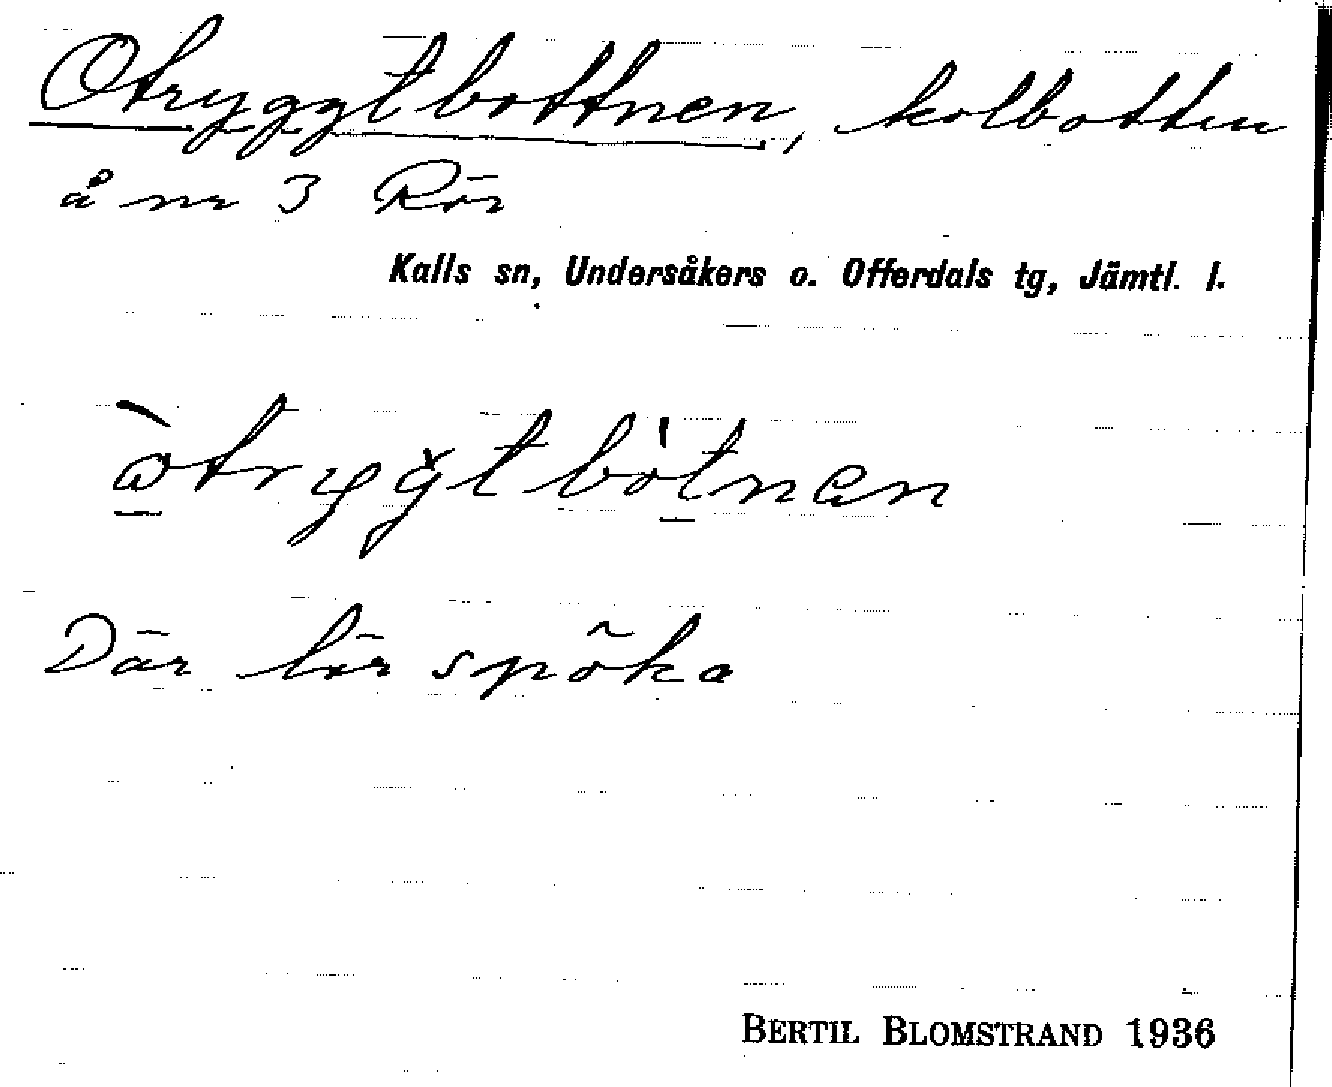 Otryggtbottnen, kolbotten
å nr 3 Rör
Kalls sn, Undersåkers o. Offerdals tg, Jämtl. l.
òtryǧtbòtnen
Där lär spöka
BERTIL BLOMSTRAND 1936